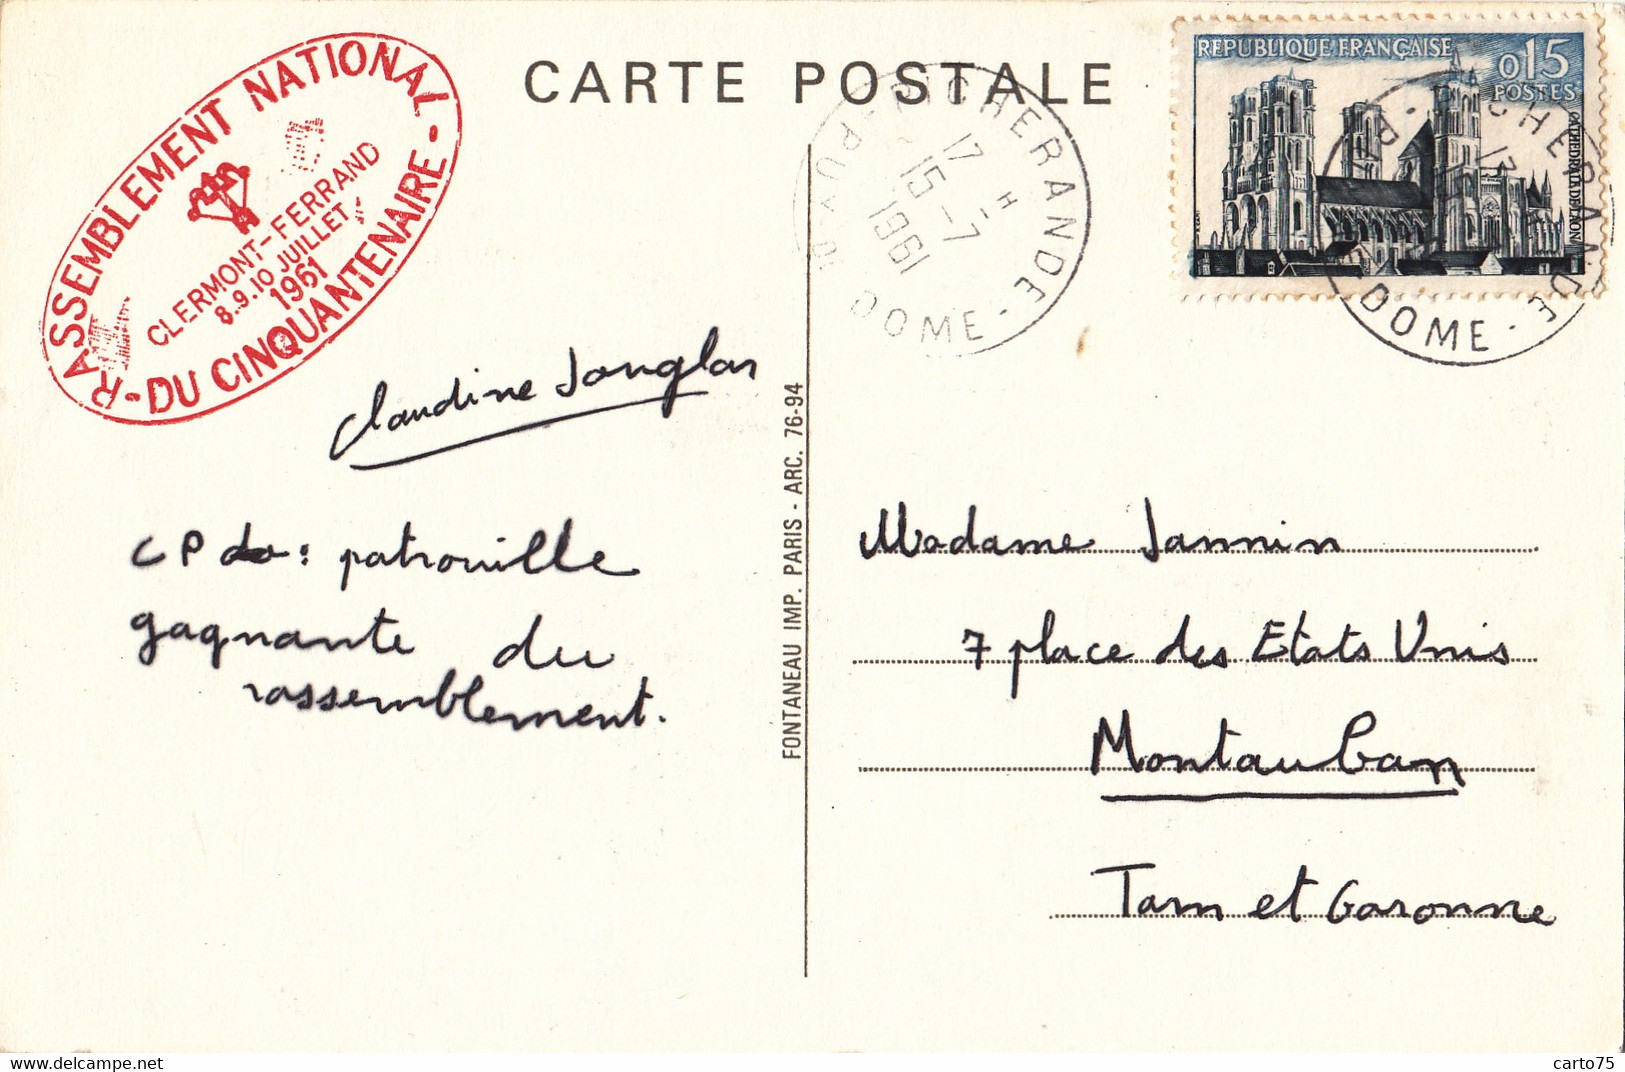 RASSEMBLEMENT NATIONAL
CLERMONT-FERRAND
8.9.10 JUILLET
1961
- DU CINQUANTENAIRE -
CARTE POSTALE
PICHERANDE
17 H
15 - 7
1961
PUY-DE-DOME
REPUBLIQUE FRANÇAISE
0,15
POSTES
CATHEDRALE DE LAON
DOME
Claudine Jonglas
CP de : patrouille
gagnante du
rassemblement.
FONTANEAU IMP. PARIS - ARC. 76-94
Madame Jannin
7 place des Etats Unis
Montauban
Tarn et Garonne
carto75